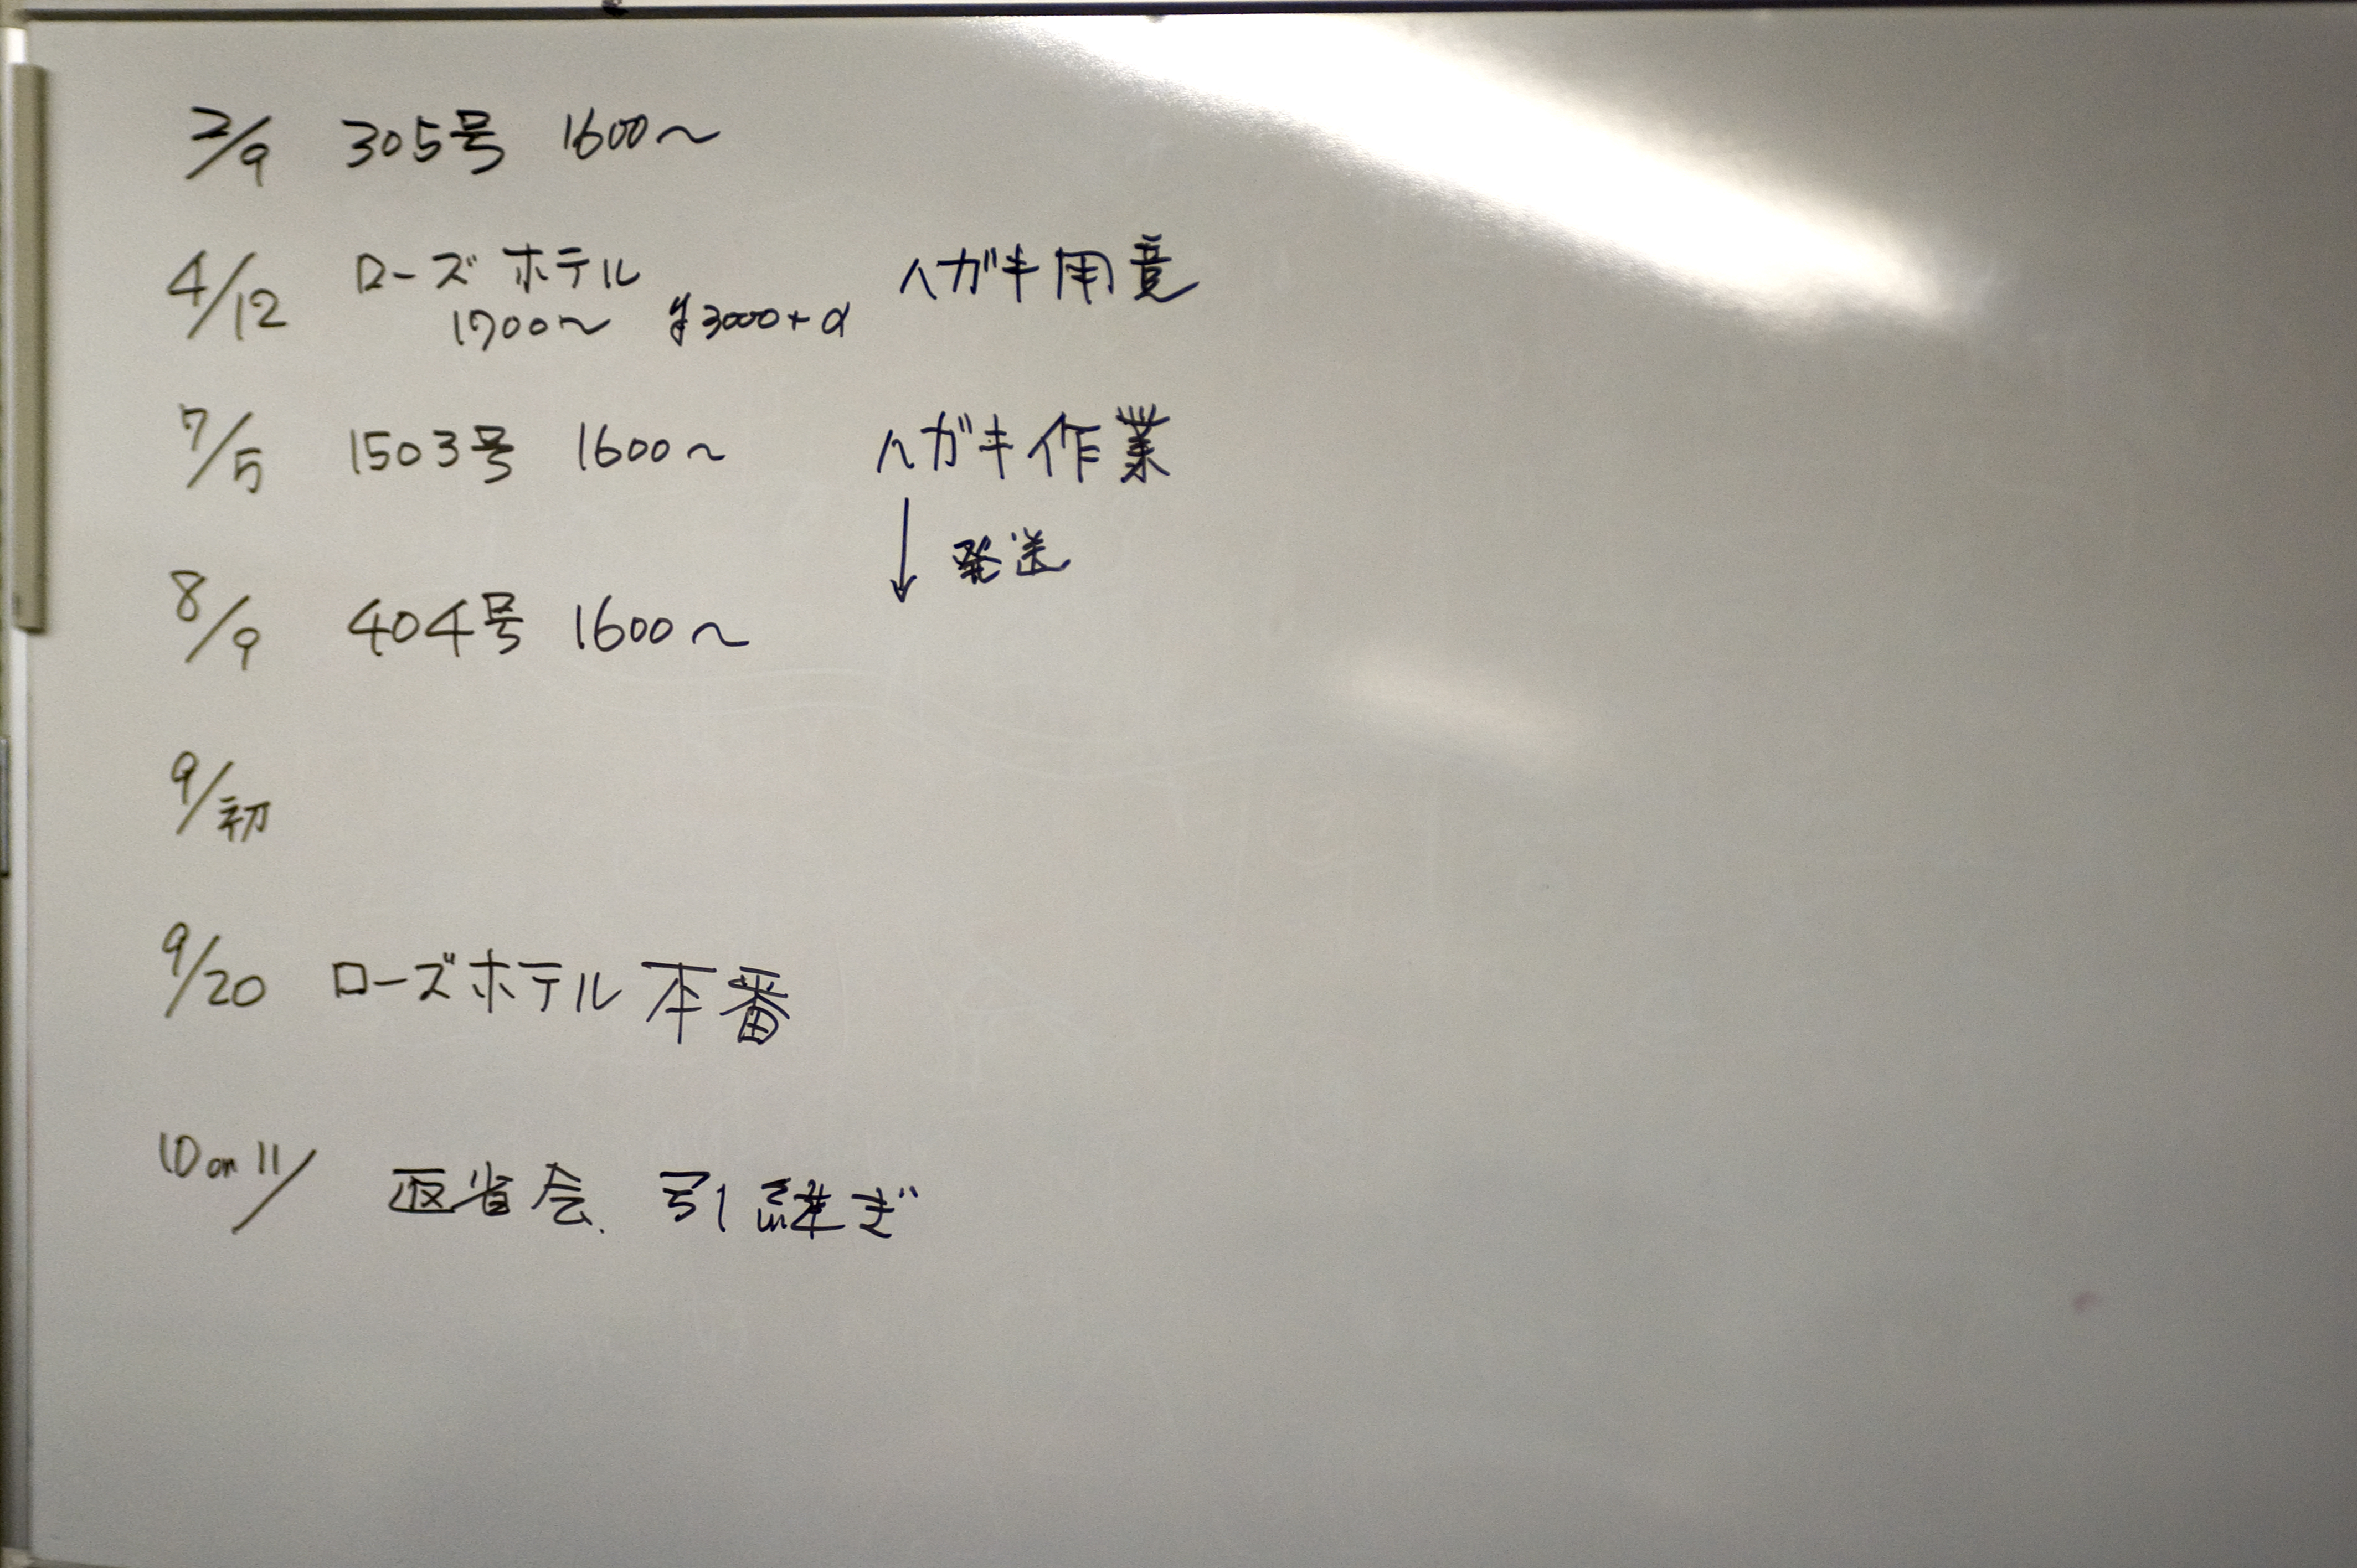 2/9 305号 1600～
4/12 ローズホテル ハガキ用意
1700～ ¥3000+α
7/5 1503号 1600～ ハガキ作業
↓ 発送
8/9 404号 1600～
9/初
9/20 ローズホテル本番
10 or 11/ 返省会、引継ぎ